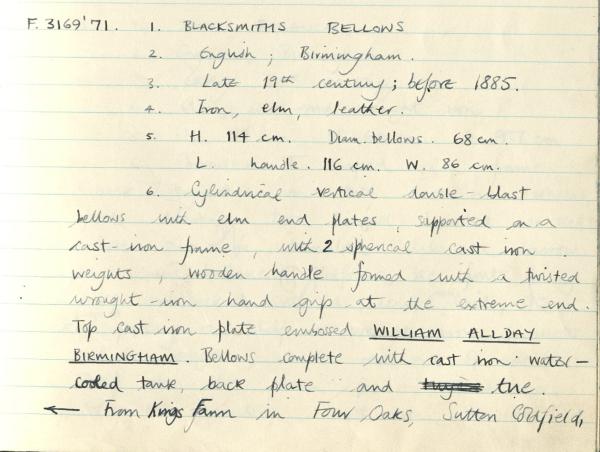 F. 3169'71. 1. BLACKSMITHS BELLOWS
2. English; Birmingham.
3. Late 19th century; before 1885.
4. Iron, elm, leather.
5. H. 114 cm. Diam. bellows. 68 cm.
L. handle. 116 cm. W. 86 cm.
6. Cylindrical vertical double-blast
bellows with elm end plates, supported on a
cast-iron frame, with 2 spherical cast iron
weights, wooden handle formed with a twisted
wrought-iron hand grip at the extreme end.
Top cast iron plate embossed WILLIAM ALLDAY
BIRMINGHAM. Bellows complete with cast iron water-
cooled tank, back plate and tue.
← From Kings Farm in Four Oaks, Sutton Coldfield,